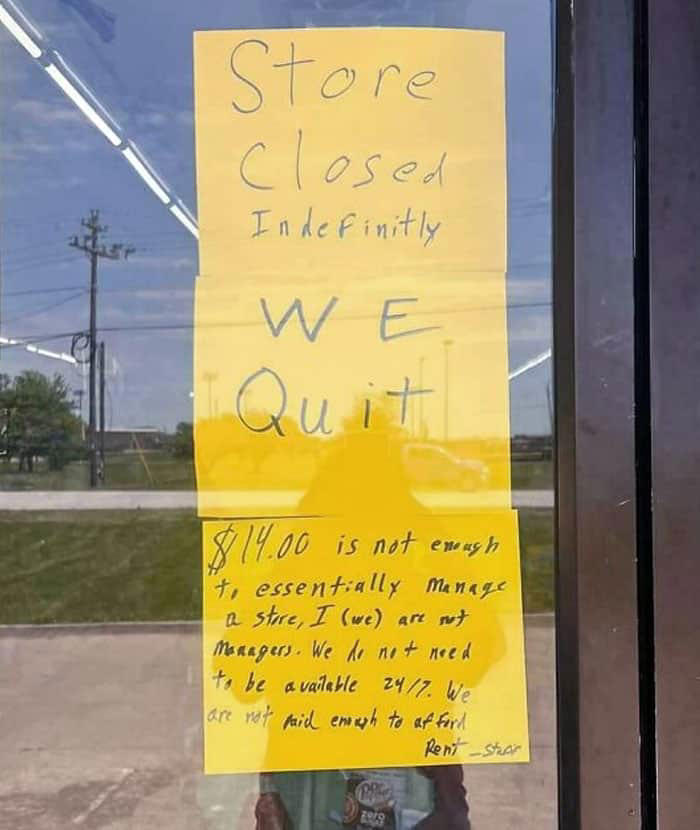 Store
Closed
Indefinitly
WE
Quit
$14.00 is not enough
to essentially manage
a store, I (we) are not
Managers. We do not need
to be available 24/7. We
are not paid enough to afford
Rent - Staff
Dr Pepper
zero